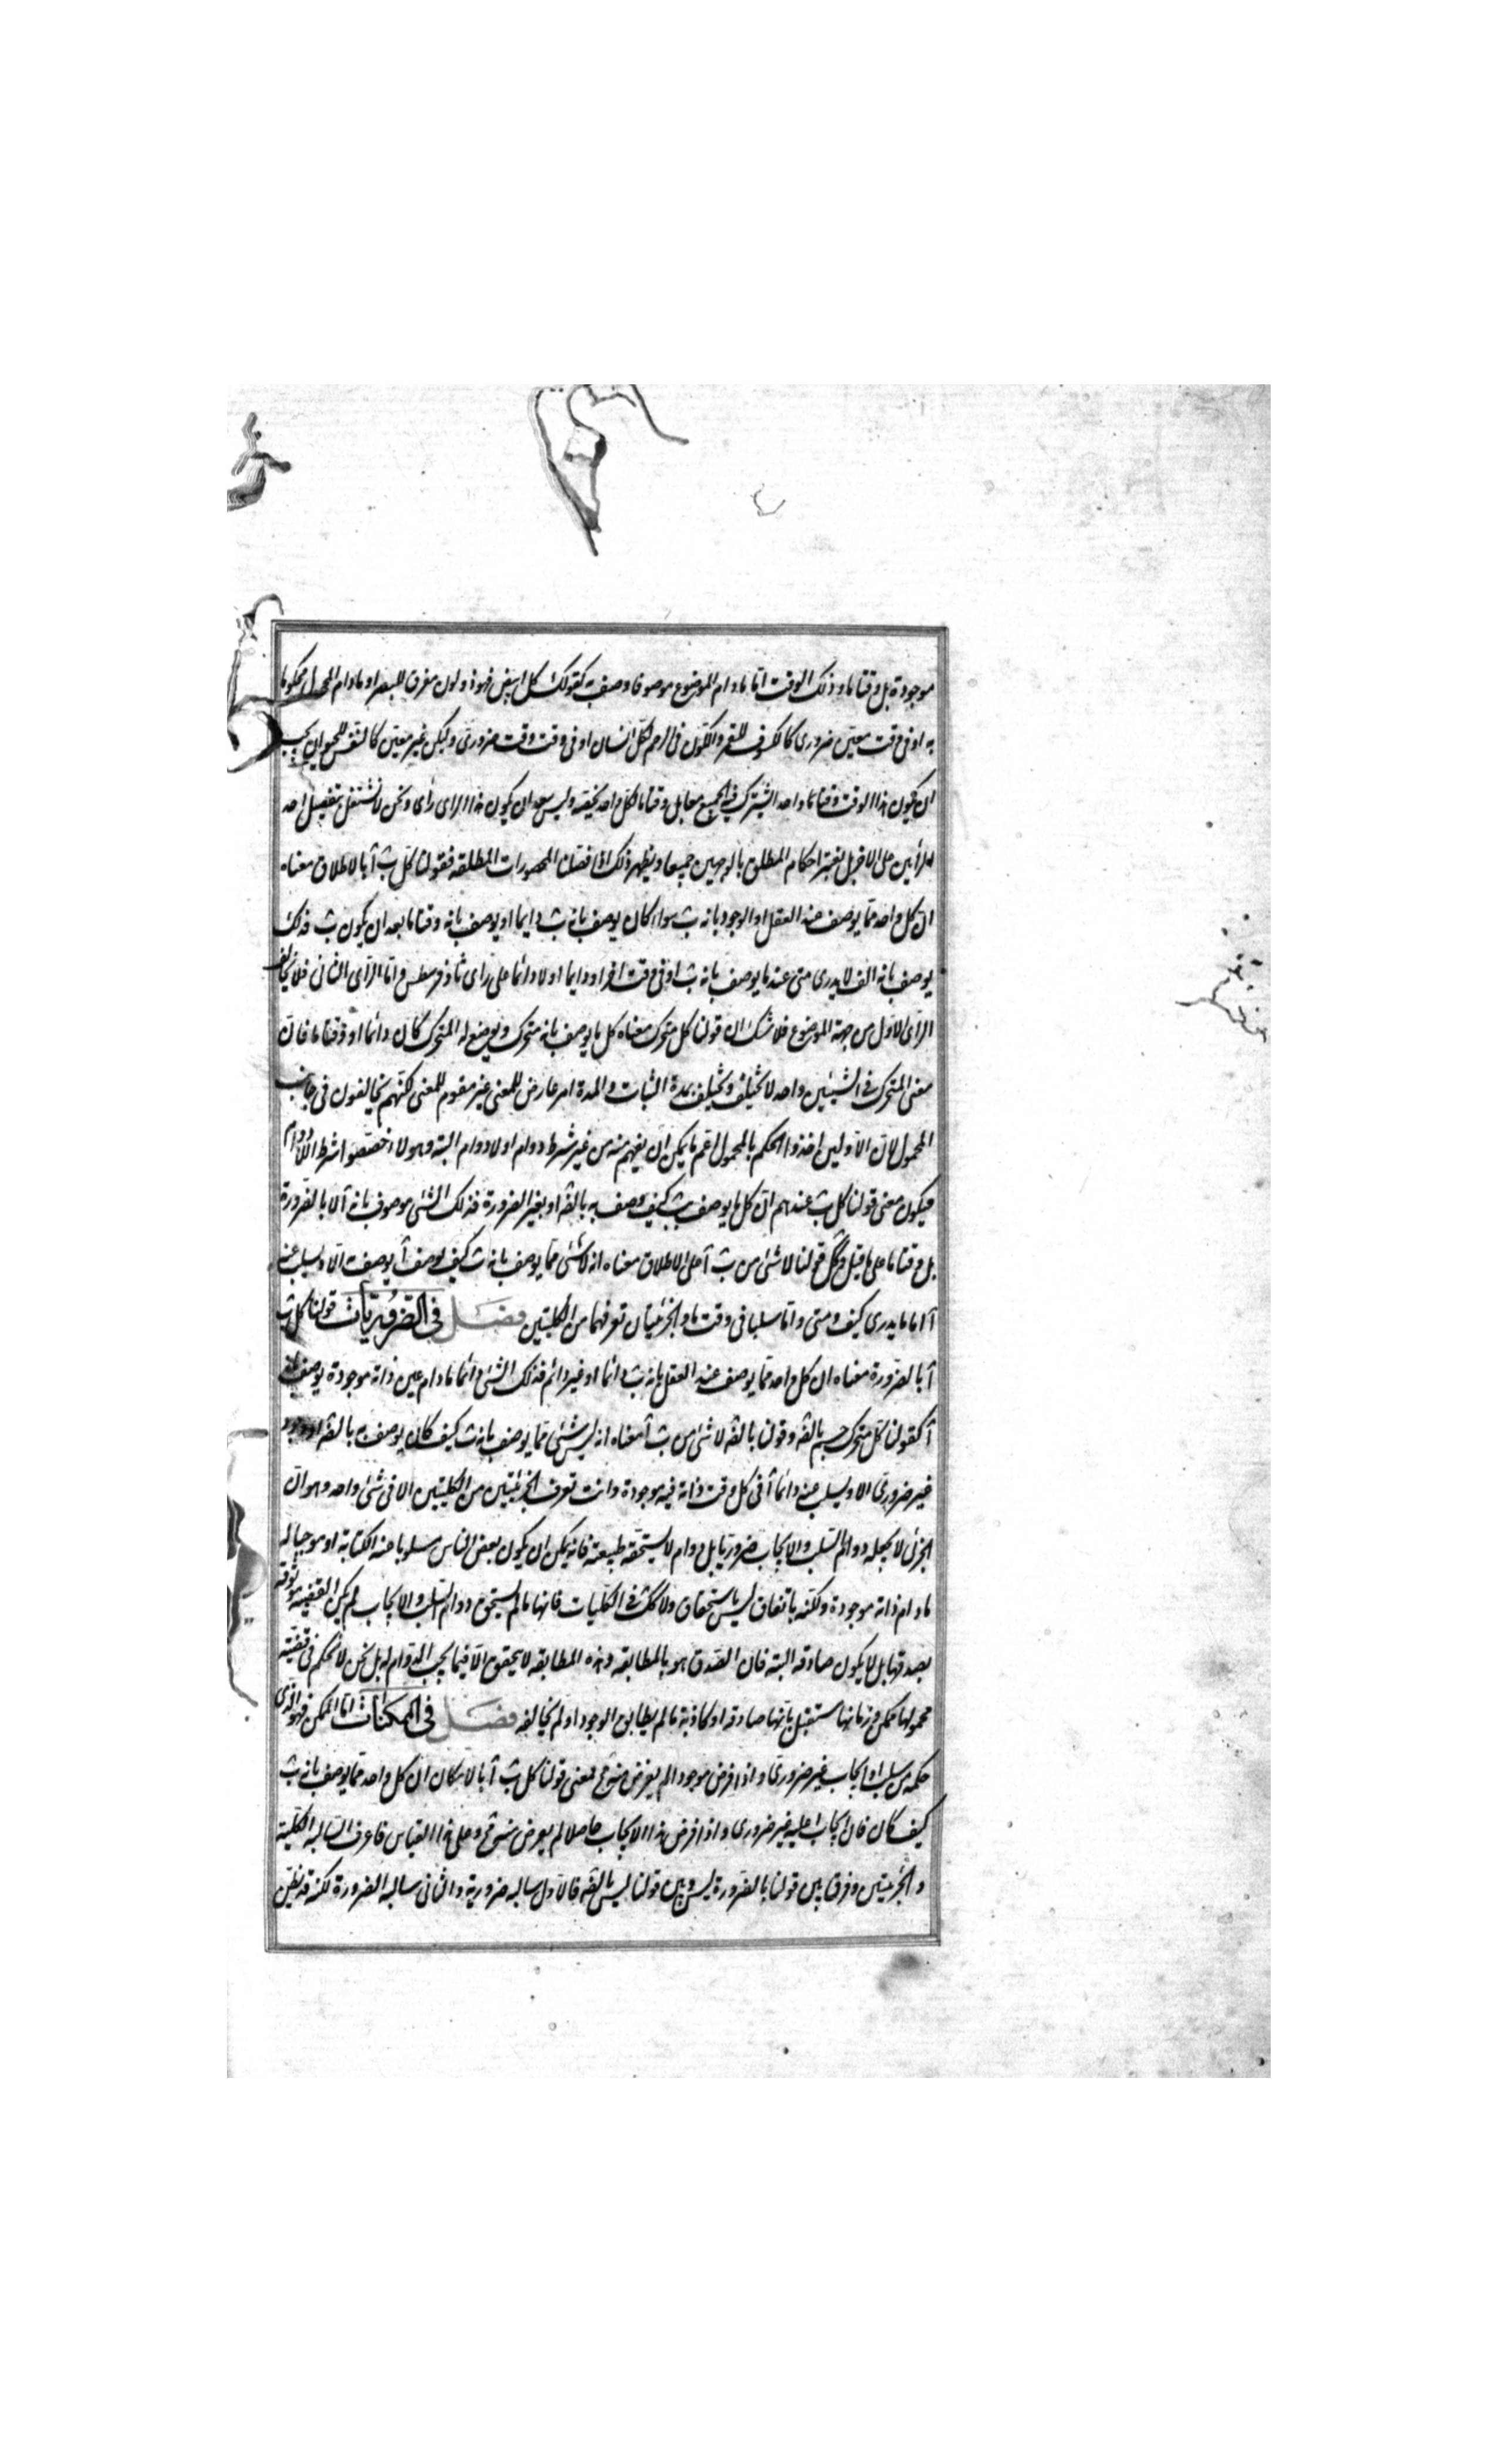 موجودة بل وقتا ما وذلك الوقت اما ما دام الموضوع موصوفا وصف به كقولك كل ابيض فهو ذو لون مفرق للبصر او ما دام المحمول محكوما
به او فى وقت معين ضرورى كالكسوف للقمر والكون فى الرحم لكل انسان او فى وقت وقت ضرورى ولكن غير معين كالتنفس للحيوان يجب
ان يكون هذا الوقت وقتا ما واحدا يشترك فيه الجميع معا بل وقتا ما لكل واحد يخصه وليس يبعد ان يكون هذا الراى راى ونحن لا نشتغل بتفضيل احد
الرأيين على الاخر بل نعتبر احكام المطلق بالوجهين جميعا ويظهر ذلك اذا فصلنا المحصورات المطلقه فقولنا كل ب آ بالاطلاق معناه
ان كل واحد مما يوصف عند العقل او الوجود بانه ب سواء كان يوصف بانه ب دايما او يوصف بانه وقتا ما بعد ان يكون ب فذلك
يوصف بانه الف لا يدرى متى عند ما يوصف بانه ب او فى وقت اخر او دايما او لا دائما على راى ثاوفرسطس واما الراى الثانى فلا يخالف
الراى الاول من جهة الموضوع فلا شك ان قولنا كل متحرك معناه كل ما يوصف بانه متحرك ويوضع له المتحرك كان دائما او وقتا ما فان
معنى المتحرك فى الشيئين واحد لا يختلف ويختلف بمدة الثبات والمدة امر عارض للمعنى غير مقوم للمعنى لكنهم يخالفون فى جانب
المحمول لان الاولين اخذوا الحكم بالمحمول اعم ما يمكن ان يفهم منه من غير شرط دوام او لا دوام البته وهولا خصصوا شرط اللادوام
فيكون معنى قولنا كل ب عندهم ان كل ما يوصف بب كيف وصف به بالضه او بغير الضرورة فذلك الشئ موصوف بانه آ لا بالضرورة
بل وقتا ما على ما قيل وكك قولنا لا شئ من ب آ على الاطلاق معناه انه لا شئ مما يوصف بانه ب كيف يوصف آ يوصف الا ويسلب عنه
آ اما ما يدرى كيف ومتى واما سلبا فى وقت ما والجزئيتان تعرفهما من الكليتين فصل فى الضروريات قولنا كل ب
آ بالضرورة معناه ان كل واحد مما يوصف عند العقل بانه ب دائما او غير دائم فذلك الشئ دائما ما دام عين ذاته موجودة يوصف بانه
آ كقولنا كل متحرك جسم بالضه وقولنا بالضه لا شئ من ب آ معناه انه ليس شئ مما يوصف بانه ب كيف كان يوصف به بالضه او وجود
غير ضرورى الا ويسلب عنه دائما آ فى كل وقت ذاته فيه موجودة وانت تعرف الجزئيتين من الكليتين الا فى شئ واحد وهو ان
الجزئى لا يجعله دوام السلب والايجاب ضروريا بل دوام لا يستحقه طبيعته فانه يمكن ان يكون بعض الناس مسلوبا عنه الكتابة او موجبا له
ما دام ذاته موجودة ولكنه باتفاق ليس باستحقاق ولا كك فى الكليات فانها ما لم يستحق دوام السلب والايجاب لم يكن القضيه موثوقه
بصدقها بل لا يكون صادقه البته فان الصدق هو بالمطابقه وهذه المطابقه لا يتحقق الا فيما يجب الدوام له بل نحن لا نحكم فى قضيته
محمولها ممكن فى زمانها مستقبل بانها صادقه او كاذبة ما لم يطابق الوجود او لم يخالفه فصل فى الممكنات اما الممكن فهو الذى
حكمه من سلب او ايجاب غير ضرورى واذا فرض موجودا لم يعرض منه مح فمعنى قولنا كل ب آ بالامكان ان كل واحد مما يوصف بانه ب
كيف كان فان ايجاب ا عليه غير ضرورى واذا فرض هذا الايجاب حاصلا لم يعرض منه مح وعلى هذا القياس فاعرف السالبه الكليه
والجزئيتين وفرق بين قولنا بالضرورة ليس وبين قولنا ليس بالضه فالاول سالبه ضرورية والثانى سالبه الضرورة لكنه قد يظن